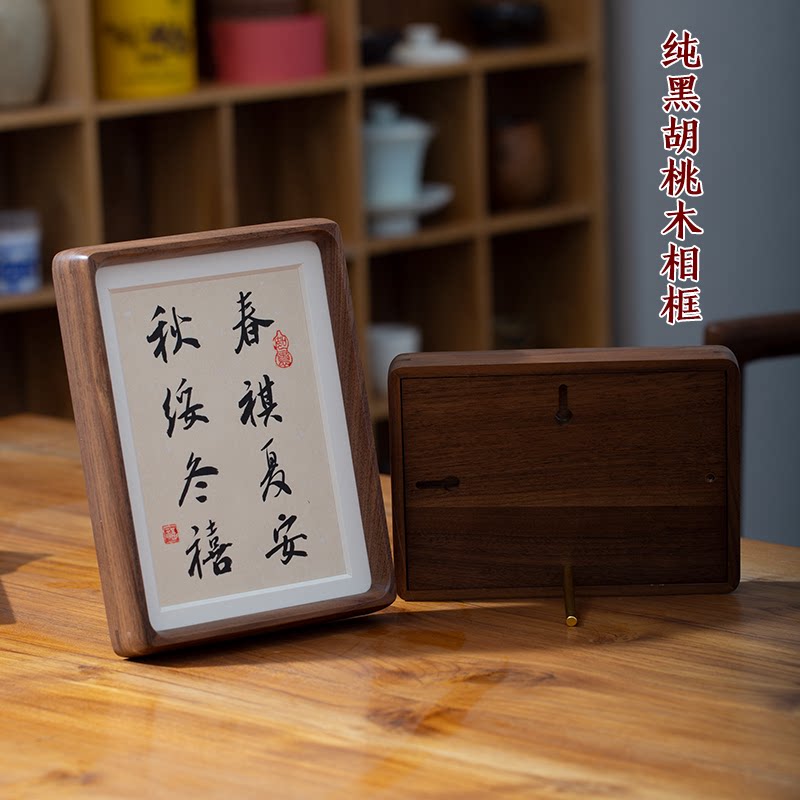 纯黑胡桃木相框
春祺夏安
秋绥冬禧